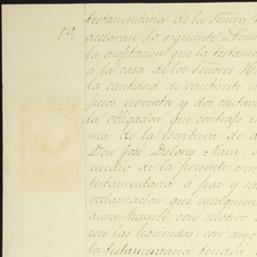 testamentaria de la Señora
declaran lo siguiente
1ª.
la aceptacion que la testamen
a la casa de los Señores
la cantidad de veintiseis
pesos noventa y dos centavos
la obligacion que contrajo en
ma de la escritura de
Don José Dolores Nava,
medio de la presente
testamentaria a paz y sal
reclamacion que cualquiera
diera hacerle, con motivo
con las haciendas, con cuyo
la testamentaría tendrá